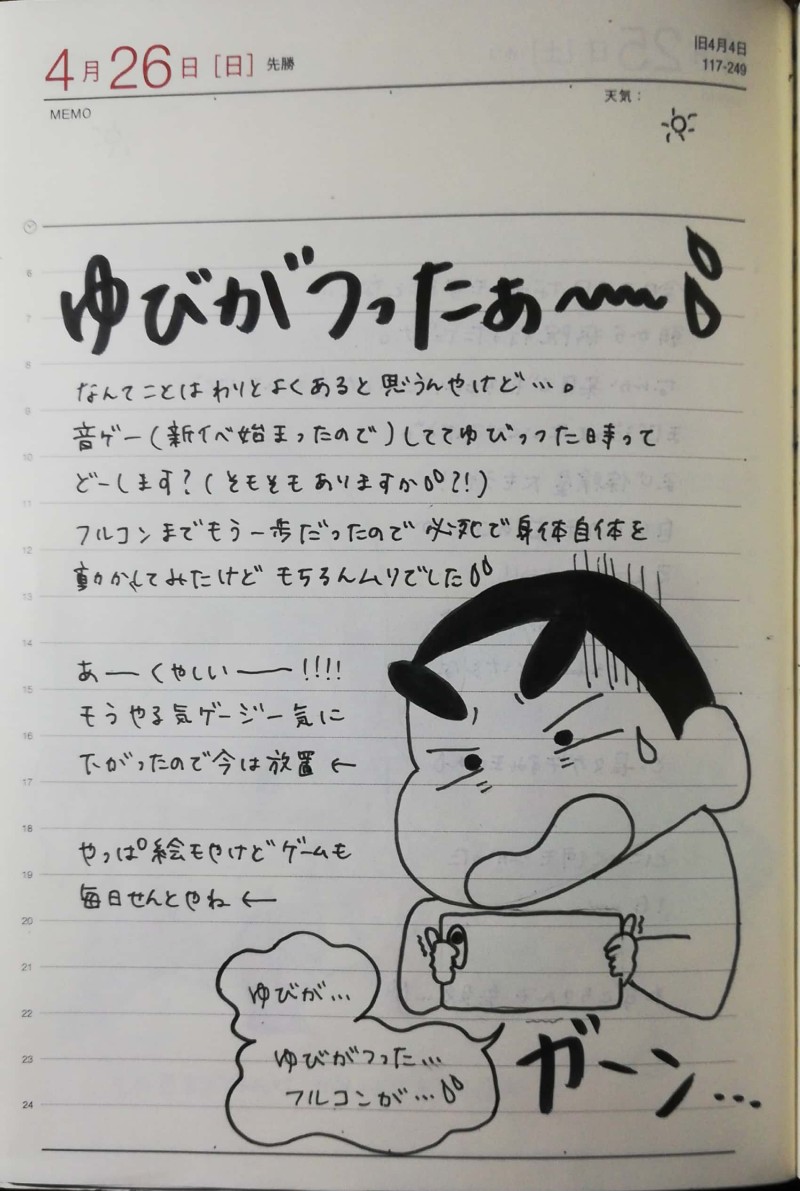 4月26日［日］先勝
旧4月4日
117-249
MEMO
天気：
ゆびがつったぁ〜
なんてことはわりとよくあると思うんやけど…。
音ゲー(新イベ始まったので)しててゆびつった時って
どーします？(そもそもありますか?!)
フルコンまでもう一歩だったので必死で身体自体を
動かしてみたけどもちろんムリでした
あーくやしいー!!!!
もうやる気ゲージ一気に
下がったので今は放置←
やっぱ絵もやけどゲームも
毎日せんとやね←
ゆびが…
ゆびがつった…
フルコンが…
ガーン…
6
7
8
9
10
11
12
13
14
15
16
17
18
19
20
21
22
23
24